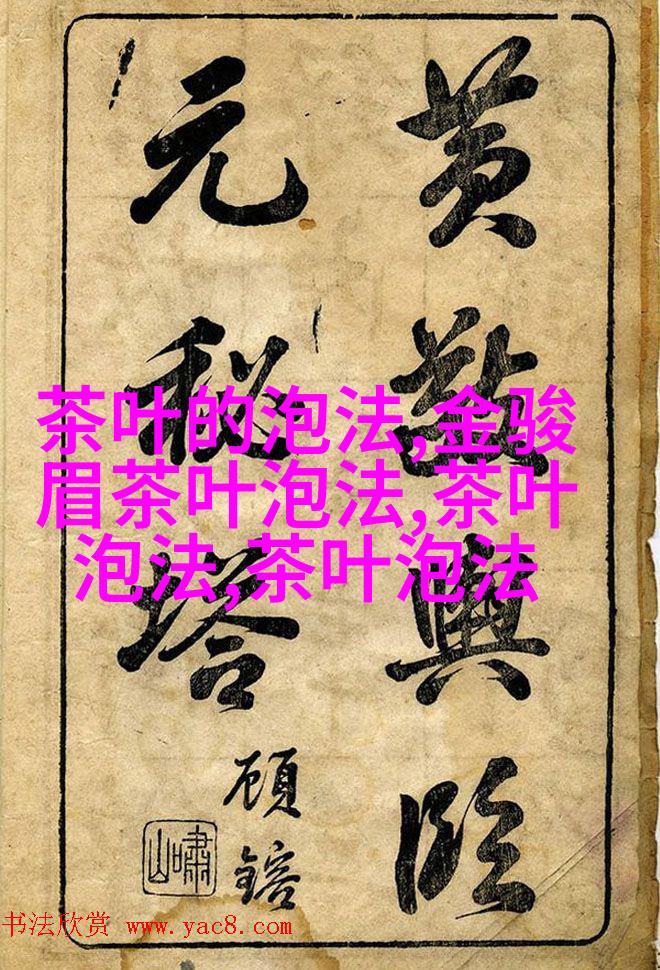 黄敬輿臨
元秘塔
顧鎔
嘯山
茶叶的泡法,金骏
眉茶叶泡法,茶叶
泡法,茶叶泡法
书法欣赏 www.yac8.com